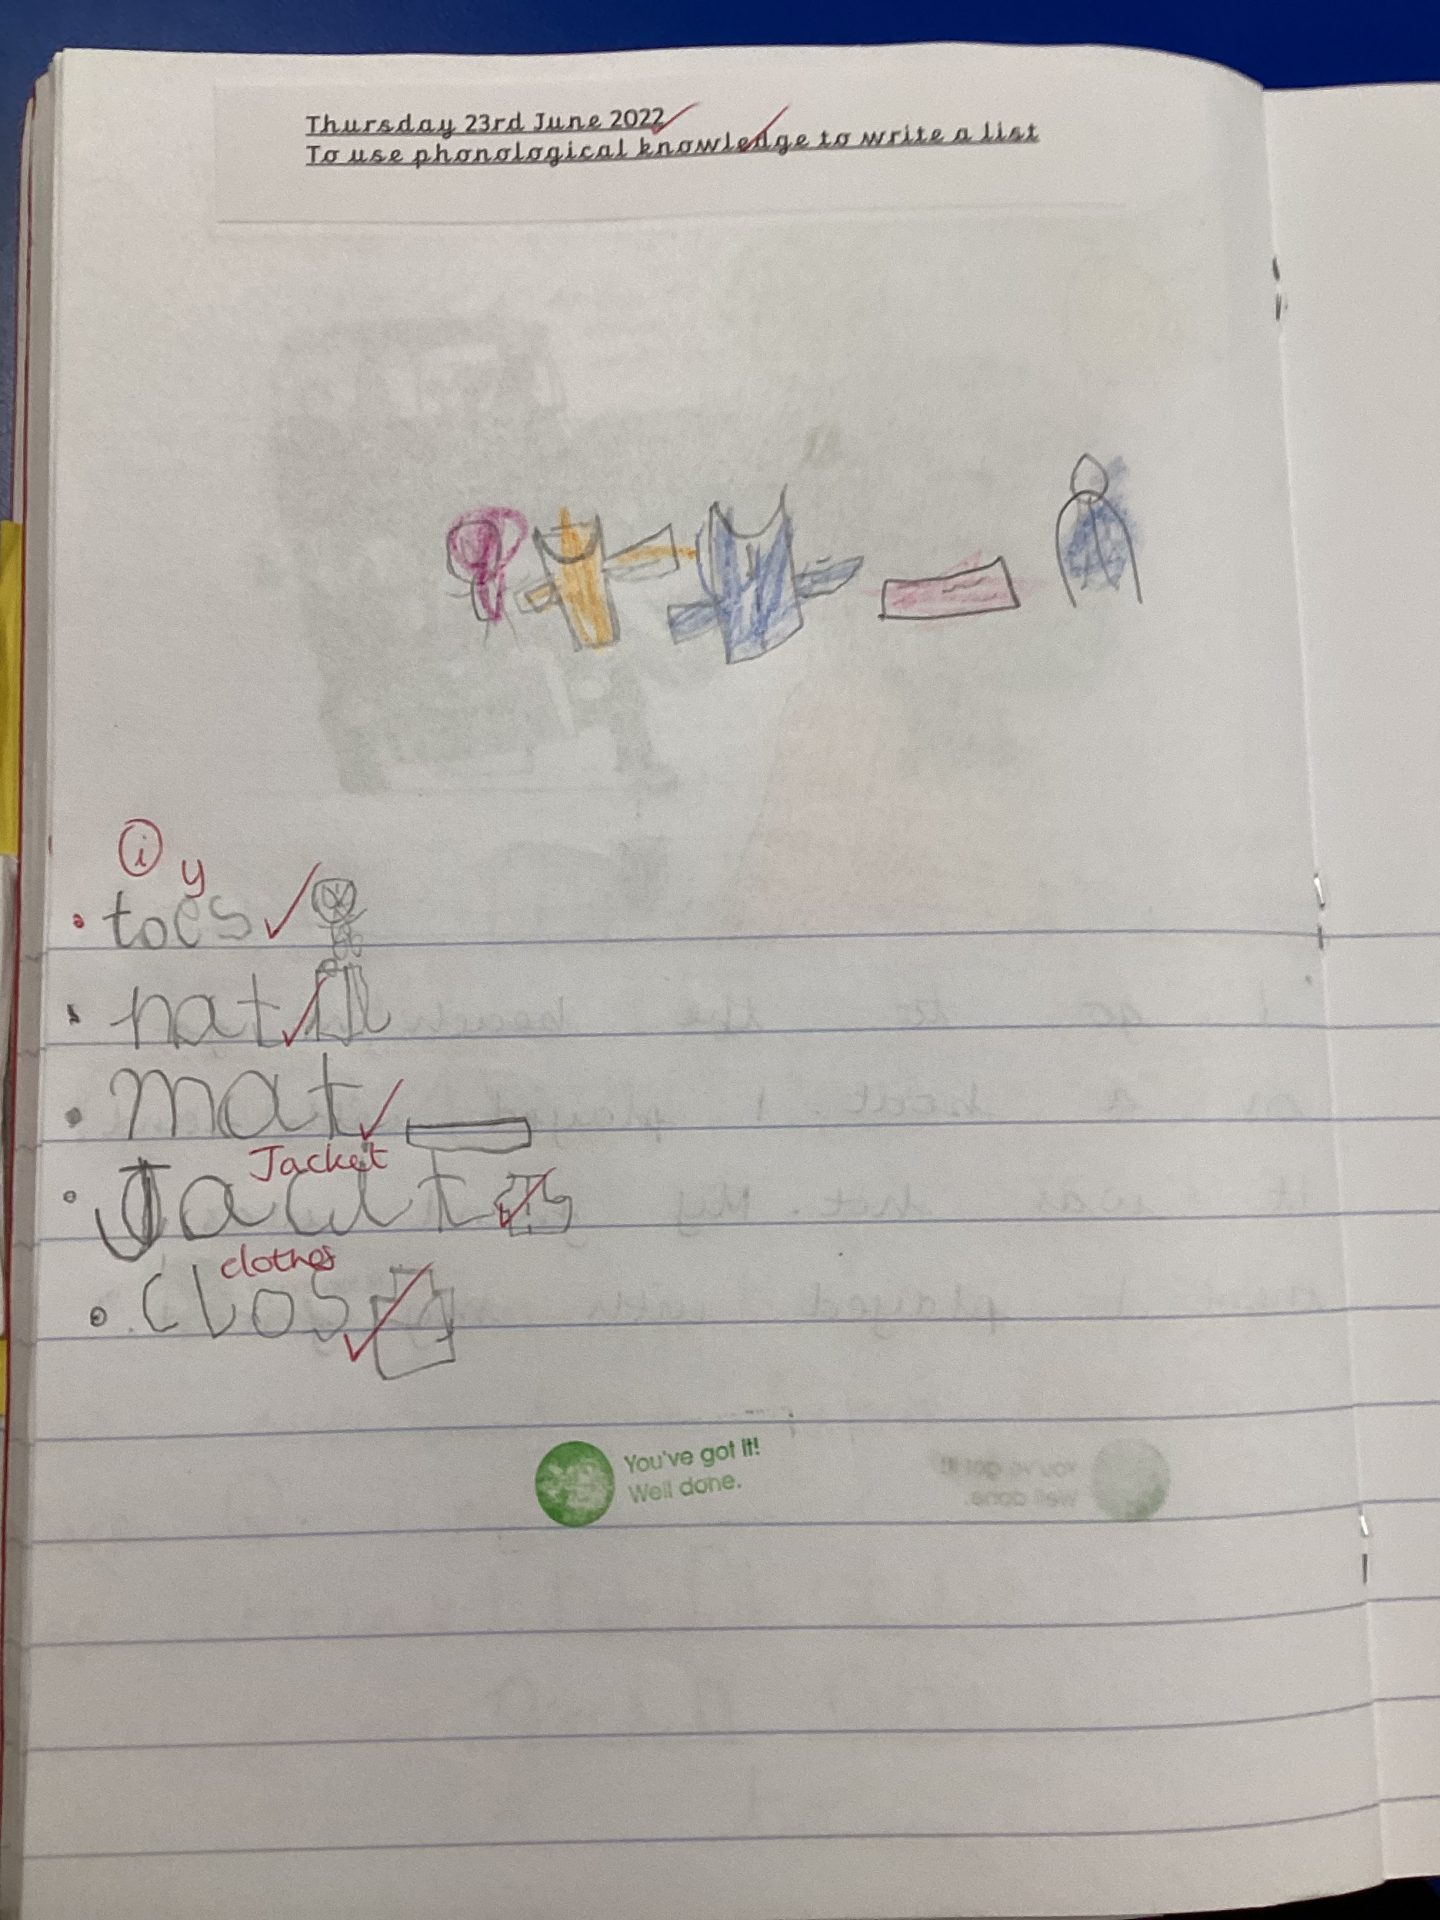 Thursday 23rd June 2022
To use phonological knowledge to write a list
i y
toes
hat
mat
Jacket
Jacit
clothes
clos
You've got it!
Well done.